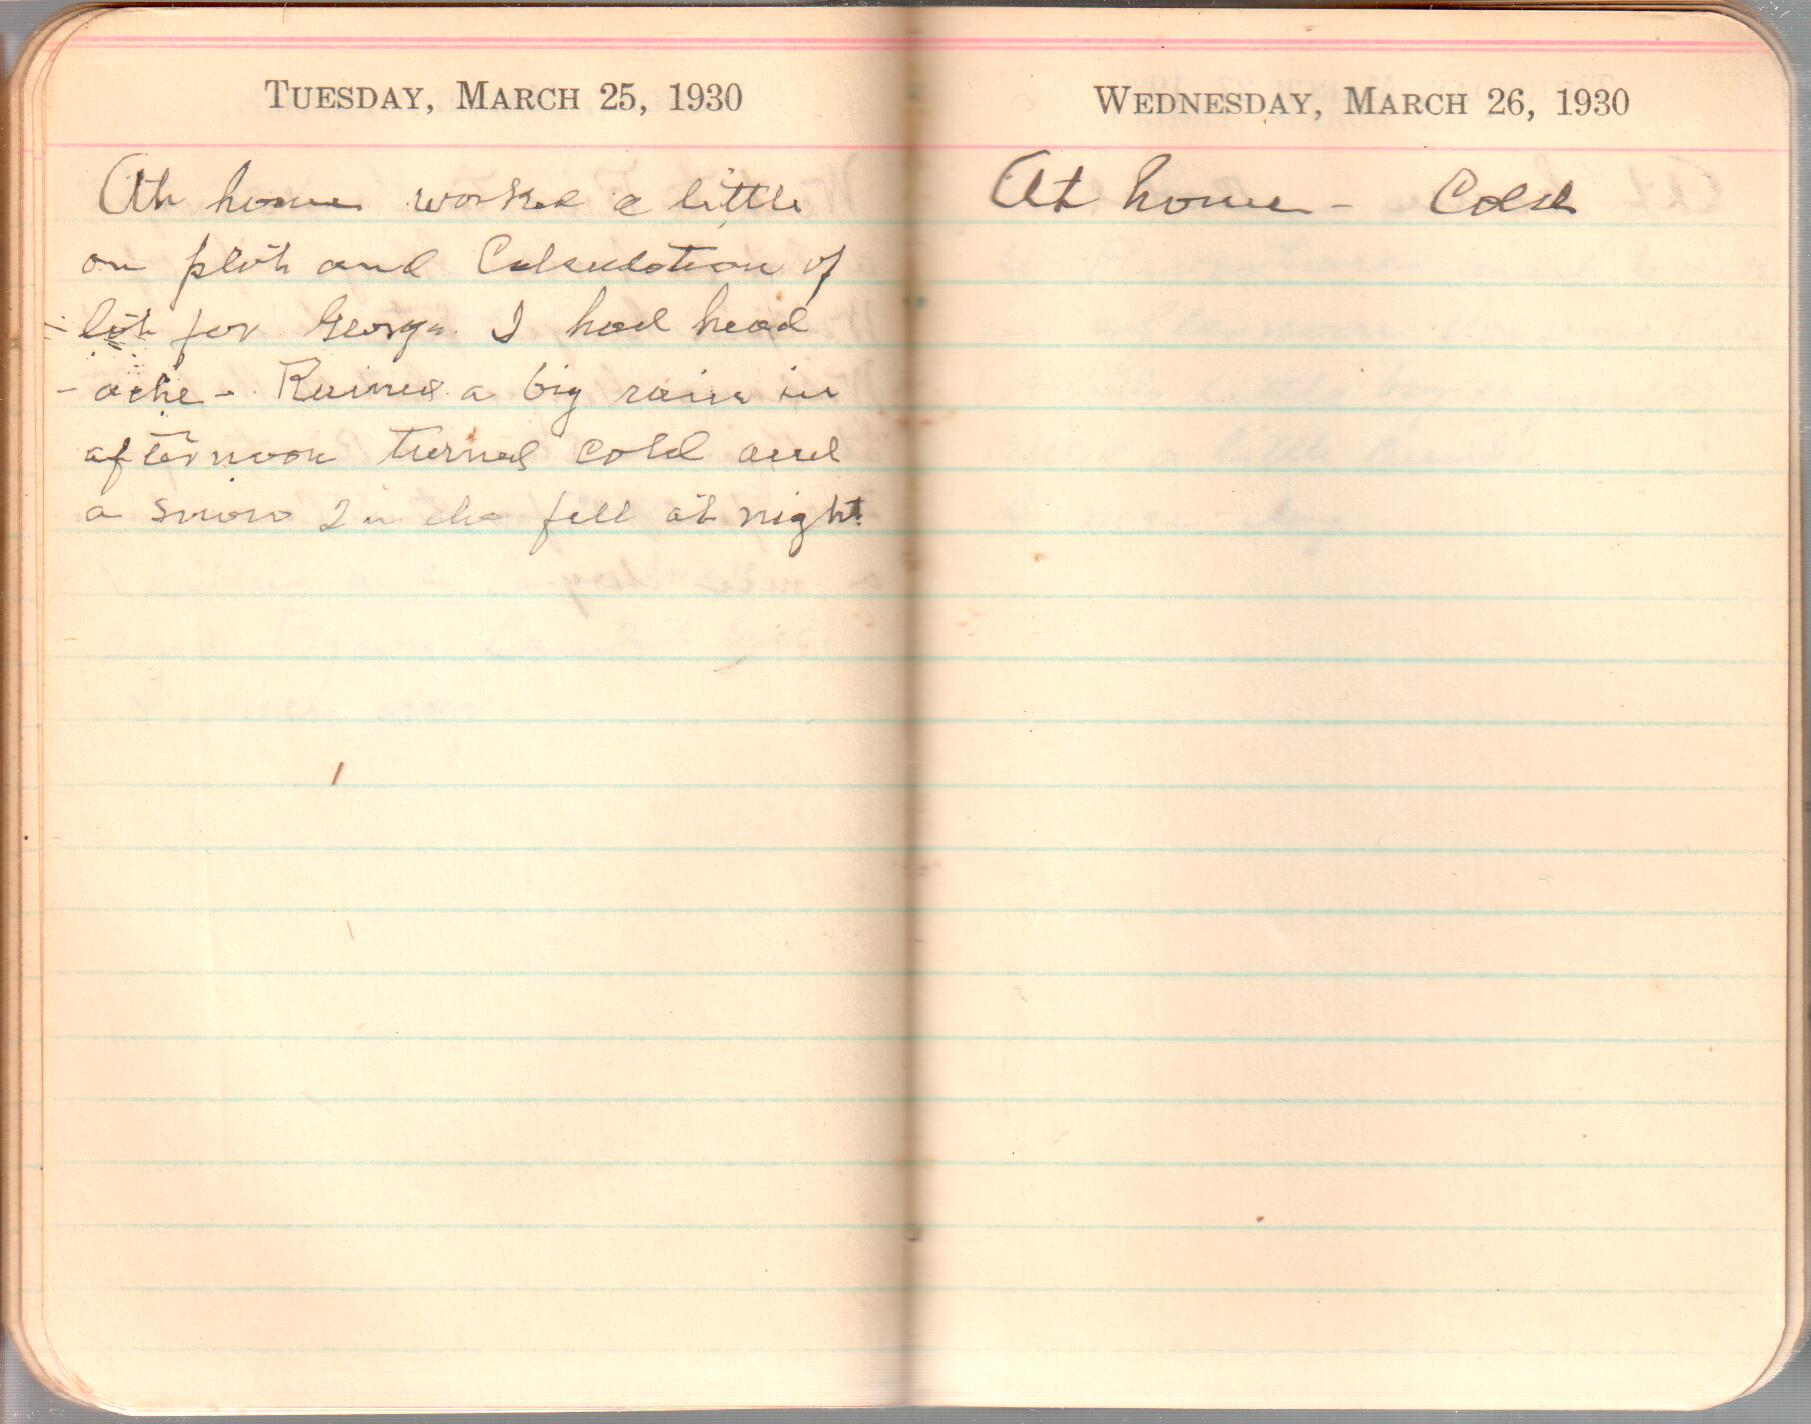 TUESDAY, MARCH 25, 1930
At home worked a little
on plot and Calculation of
lot for George. I had head
- ache - Rained a big rain in
afternoon turned cold and
a snow 2 in che fell at night
WEDNESDAY, MARCH 26, 1930
At home - Cold